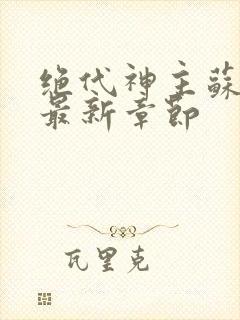 绝代神主蘇
最新章節
瓦里克